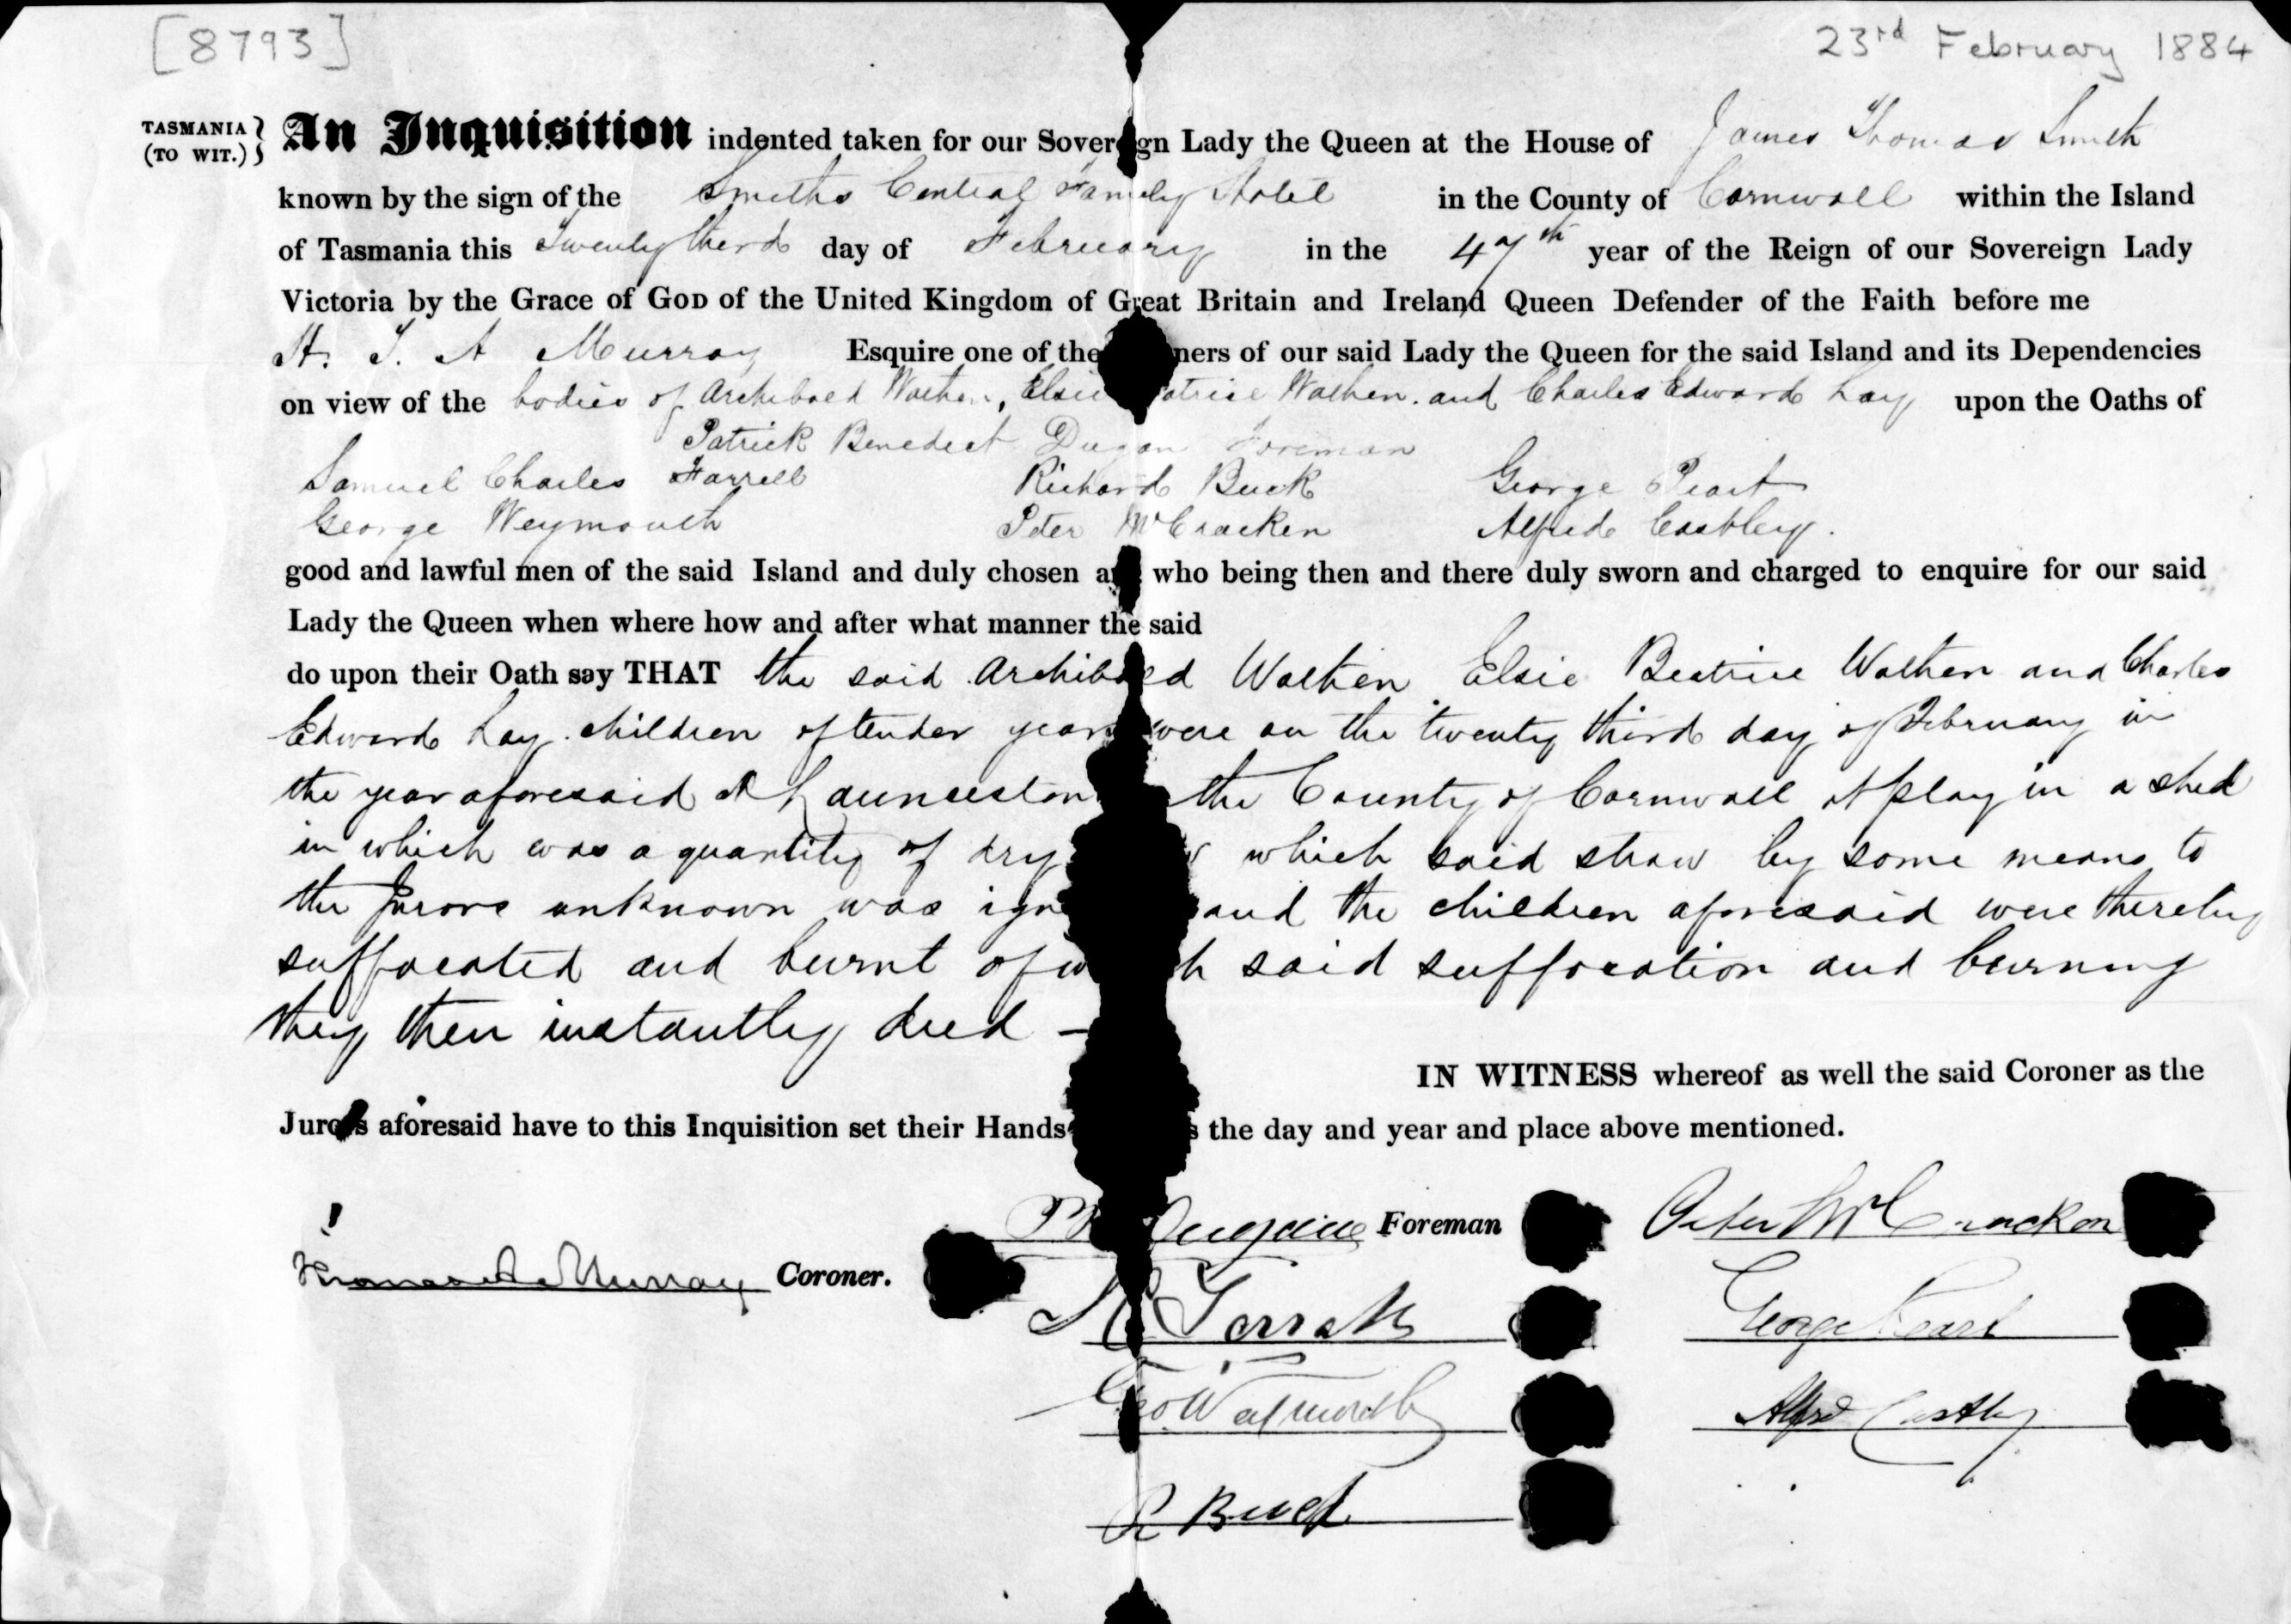 [8793]
23rd February 1884
TASMANIA
(TO WIT.)
An Inquisition indented taken for our Sover gn Lady the Queen at the House of James Thomas Smith
known by the sign of the Smiths Central Family Hotel in the County of Cornwall within the Island
of Tasmania this Twenty third day of February in the 47th year of the Reign of our Sovereign Lady
Victoria by the Grace of GOD of the United Kingdom of Great Britain and Ireland Queen Defender of the Faith before me
H. T. A Murray Esquire one of the ners of our said Lady the Queen for the said Island and its Dependencies
on view of the bodies of Archibald Wathen, Elsie atrice Wathen. and Charles Edward Lay upon the Oaths of
Patrick Benedict Dugan Foreman
Samuel Charles Farrell Richard Buck George Peart
George Weymouth Peter McCracken Alfred Castley.
good and lawful men of the said Island and duly chosen a who being then and there duly sworn and charged to enquire for our said
Lady the Queen when where how and after what manner the said
do upon their Oath say THAT the said Archibald Wathen Elsie Beatrice Wathen and Charles
Edward Lay children of tender years were on the twenty third day of February in
the year aforesaid at Launceston the County of Cornwall at play in a shed
in which was a quantity of dry w which said straw by some means to
the Jurors unknown was ign and the children aforesaid were thereby
suffocated and burnt of w h said suffocation and burning
they then instantly died —
IN WITNESS whereof as well the said Coroner as the
Jurors aforesaid have to this Inquisition set their Hands s the day and year and place above mentioned.
Murray Coroner.
Foreman
Peter McCracken
George Peart
Geo Weymouth
Alfred Castley
R Buck